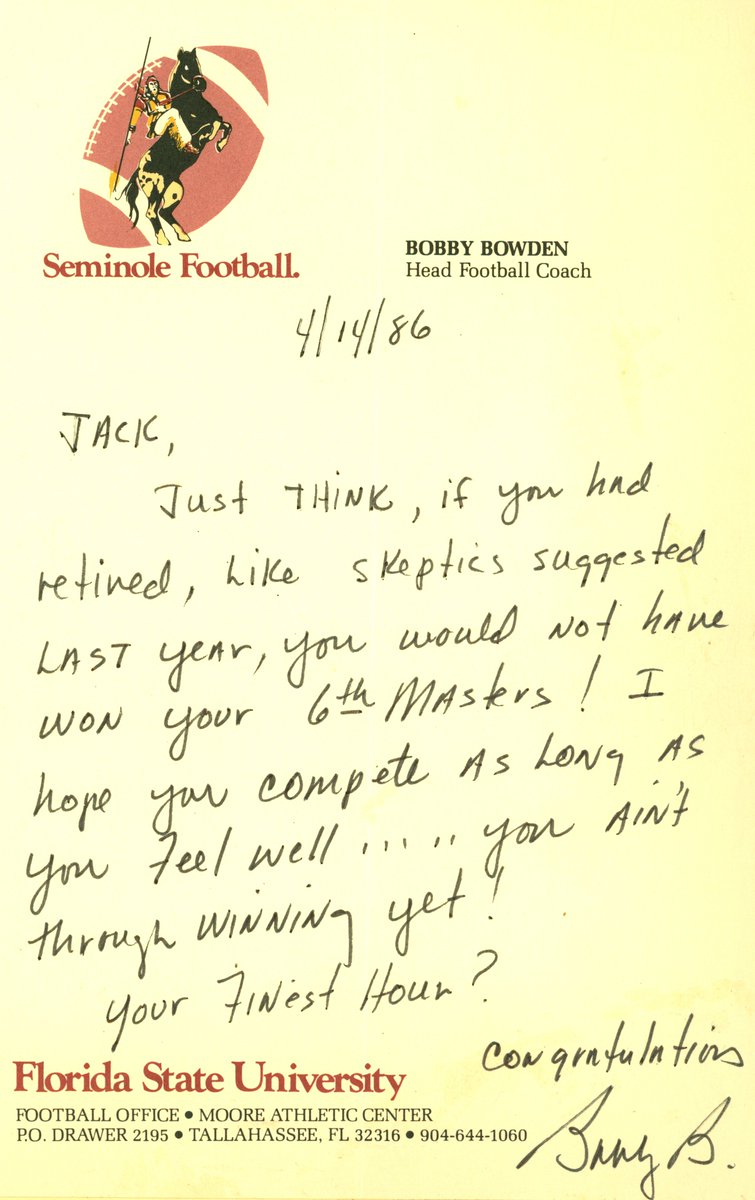 Seminole Football.
BOBBY BOWDEN
Head Football Coach
4/14/86
JACK,
Just THINK, if you had
retired, Like skeptics suggested
LAST year, you would not have
won your 6th Masters! I
hope you compete as long as
you feel well ..... you ain't
through winning yet!
Your Finest Hour?
Congratulations
Bobby B.
Florida State University
FOOTBALL OFFICE • MOORE ATHLETIC CENTER
P.O. DRAWER 2195 • TALLAHASSEE, FL 32316 • 904-644-1060